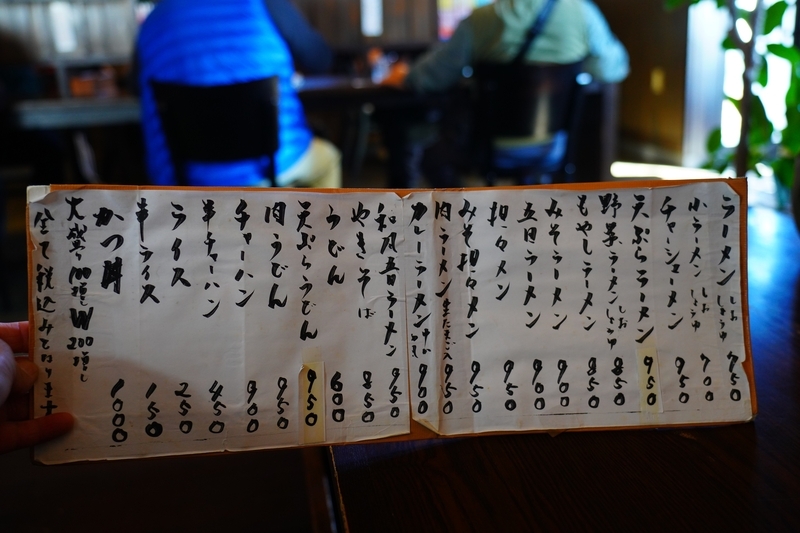 ラーメン しお しょうゆ 750
小ラーメン しお しょうゆ 700
チャーシューメン 950
天ぷらラーメン 950
野菜ラーメン しお しょうゆ 850
もやしラーメン 850
みそラーメン 900
五目ラーメン 950
担々メン 950
みそ担々メン 950
肉ラーメン 生たまご入 950
カレーラーメン 900
和風五目ラーメン 950
やきそば 850
うどん 600
天ぷらうどん 950
肉うどん 950
チャーハン 900
半チャーハン 450
ライス 250
半ライス 150
かつ丼 1000
大盛り100増し W200増し
全て税込みとなります